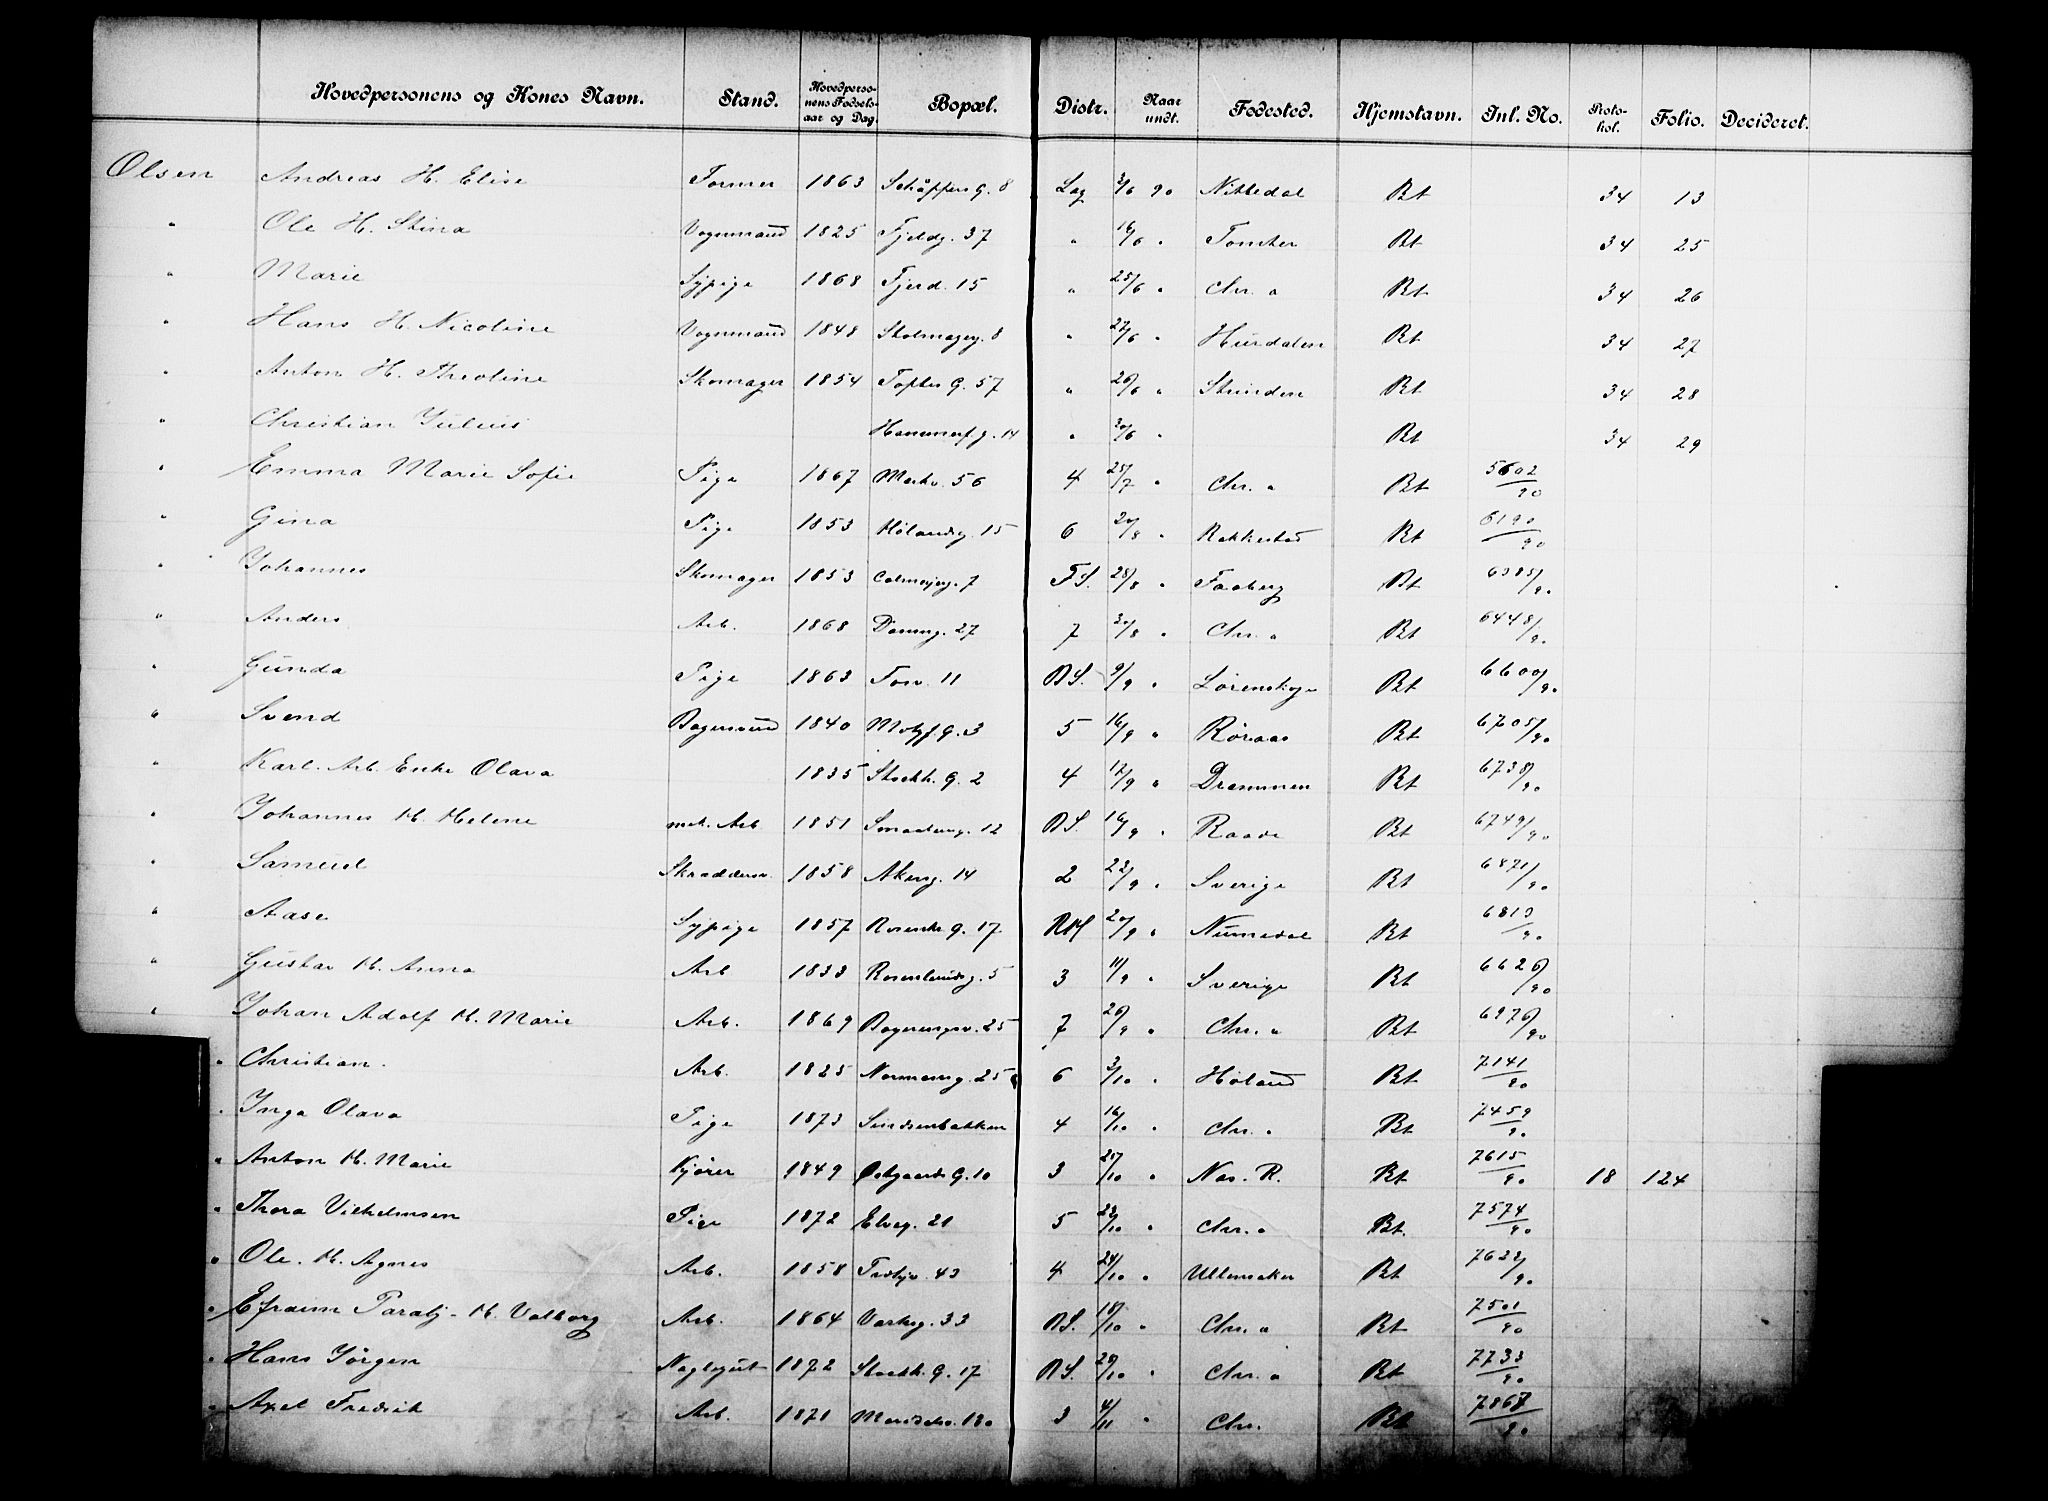 Hovedpersonens og Kones Navn. Stand. Hovedpersonens Fødselsaar og Dag. Bopæl. Distr. Naar undt. Fødested. Hjemstavn. Inl. No. Protokol. Folio. Decideret.
Olsen Andreas H. Elise Former 1863 G. 8 Lag 3/6 90 Nittedal Bt 34 13
" Ole H. Stina Vognmand 1825 Fjeldg. 37 " 16/6 " Tomter Bt 34 25
" Marie Sypige 1868 Fjerd. 15 " 25/6 " Chr. a Bt 34 26
" Hans H. Nicoline Vognmand 1848 Skolmagerg. 8 " 27/6 " Hurdalen Bt 34 27
" Anton H. Theoline Skomager 1854 Toftes G. 57 " 26/6 " Strinden Bt 34 28
" Christian Julius Hammerf. g. 14 " 20/6 " Bt 34 29
" Emma Marie Sofie Pige 1867 Markv. 56 4 25/7 " Chr. a Bt 5602/90
" Gina Pige 1853 Hølandsg. 15 6 20/8 " Rakkestad Bt 6190/90
" Johannes Skomager 1853 Calmeyerg. 7 F.S. 28/8 " Faaberg Bt 6385/90
" Anders Arb. 1868 Dammg. 27 7 30/8 " Chr. a Bt 6448/90
" Gunda Pige 1863 Fosv. 11 B.S. 9/9 " Lørenskoge Bt 6600/90
" Svend Bogermand 1840 Motzf. G. 3 5 16/9 " Røraas Bt 6705/90
" Karl. Arb. Enke Olava 1835 Stockh. G. 2 4 12/9 " Drammen Bt 6738/90
" Johannes H. Helene mek. Arb. 1851 Smaaleneng. 12 B.S. 16/9 " Raade Bt 6749/90
" Samuel Skræddersv. 1858 Akersg. 14 2 22/9 " Sverige Bt 6871/90
" Aase Sypige 1857 Rosenkr. G. 17 RH 20/9 " Numedal Bt 6810/90
" Gustav H. Anna Arb 1833 Rosenlundsg. 5 3 11/9 " Sverige Bt 6626/90
" Johan Adolf H. Marie Arb. 1869 25 7 26/9 " Chr. a Bt 6976/90
" Christian. Arb. 1825 Normannsg. 25 6 3/10 " Høland Bt 7141/90
" Inga Olava Pige 1873 4 16/10 " Chr. a Bt 7459/90
" Anton H. Marie Kjører 1849 Østgaards G. 10 3 25/10 " Nes. R. Bt 7615/90 18 124
" Thora Vilhelmsen Pige 1872 Elveg. 21 5 22/10 " Chr. a Bt. 7574/90
" Ole. H. Agnes Arb. 1858 43 4 24/10 " Ullensaker Bt 7632/90
" Efraim Paralj. H. Valborg Arb. 1864 33 B.S. 18/10 " Chr. a Bt 7501/90
" Hans Jørgen Naglegut 1872 Stockh. G. 17 B.S. 29/10 " Chr. a Bt 7733/90
" Axel Fredrik Arb. 1871 3 4/11 " Chr. Bt 7867/90